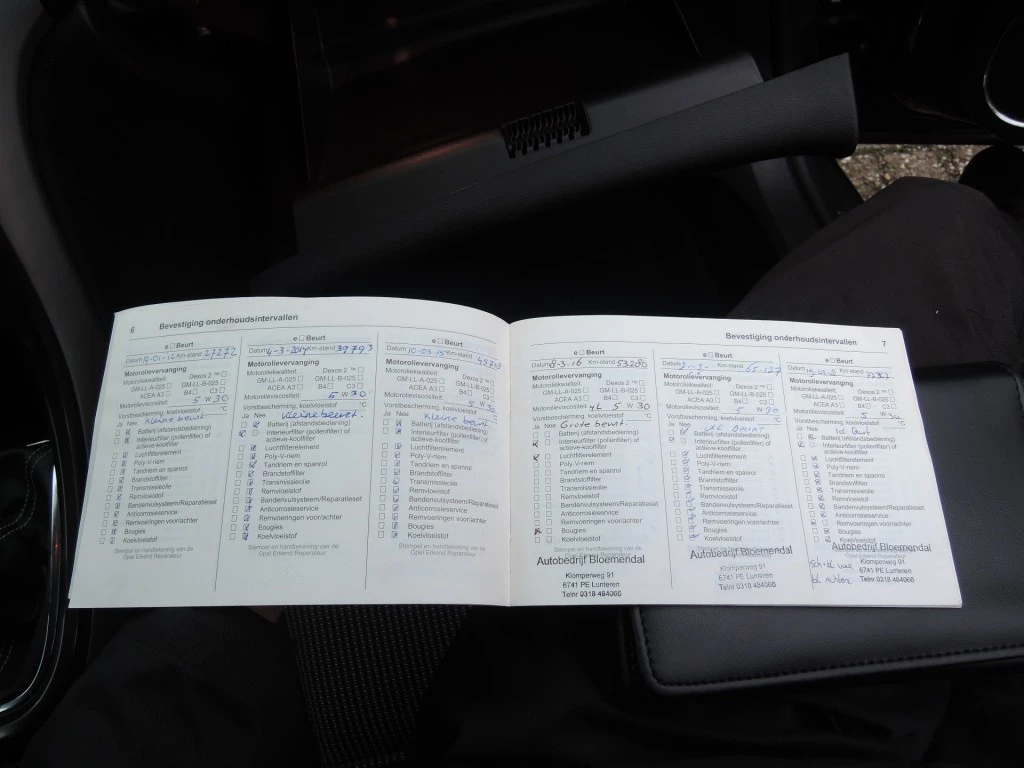 6
Bevestiging onderhoudsintervallen
e Beurt
Datum Km-stand 27272
Motorolievervanging
Motoroliekwaliteit: Dexos 2 ™
GM-LL-A-025 GM-LL-B-025
ACEA A3 B4 C3
Motorolieviscositeit: 5 W 30
Vorstbescherming, koelvloeistof °C
Ja Nee Kleine beurt
Batterij (afstandsbediening)
Interieurfilter (pollenfilter) of
actieve-koolfilter
Luchtfilterelement
Poly-V-riem
Tandriem en spanrol
Brandstoffilter
Transmissieolie
Remvloeistof
Bandenvulsysteem/Reparatieset
Anticorrosieservice
Remvoeringen voor/achter
Bougies
Koelvloeistof
Stempel en handtekening van de
Opel Erkend Reparateur
e Beurt
Datum 4-3-2014 Km-stand 39793
Motorolievervanging
Motoroliekwaliteit: Dexos 2 ™
GM-LL-A-025 GM-LL-B-025
ACEA A3 B4 C3
Motorolieviscositeit: 5 W 30
Vorstbescherming, koelvloeistof °C
Ja Nee Kleine beurt.
Batterij (afstandsbediening)
Interieurfilter (pollenfilter) of
actieve-koolfilter
Luchtfilterelement
Poly-V-riem
Tandriem en spanrol
Brandstoffilter
Transmissieolie
Remvloeistof
Bandenvulsysteem/Reparatieset
Anticorrosieservice
Remvoeringen voor/achter
Bougies
Koelvloeistof
Stempel en handtekening van de
Opel Erkend Reparateur
e Beurt
Datum 10-03-15 Km-stand
Motorolievervanging
Motoroliekwaliteit: Dexos 2 ™
GM-LL-A-025 GM-LL-B-025
ACEA A3 B4 C3
Motorolieviscositeit: 5 W 30
Vorstbescherming, koelvloeistof °C
Ja Nee Kleine beurt
Batterij (afstandsbediening)
Interieurfilter (pollenfilter) of
actieve-koolfilter
Luchtfilterelement
Poly-V-riem
Tandriem en spanrol
Brandstoffilter
Transmissieolie
Remvloeistof
Bandenvulsysteem/Reparatieset
Anticorrosieservice
Remvoeringen voor/achter
Bougies
Koelvloeistof
Stempel en handtekening van de
Opel Erkend Reparateur
Bevestiging onderhoudsintervallen
7
e Beurt
Datum 8-3-16 Km-stand 53280
Motorolievervanging
Motoroliekwaliteit: Dexos 2 ™
GM-LL-A-025 GM-LL-B-025
ACEA A3 B4 C3
Motorolieviscositeit: 4L 5 W 30
Vorstbescherming, koelvloeistof °C
Ja Nee Grote beurt.
Batterij (afstandsbediening)
Interieurfilter (pollenfilter) of
actieve-koolfilter
Luchtfilterelement
Poly-V-riem
Tandriem en spanrol
Brandstoffilter
Transmissieolie
Remvloeistof
Bandenvulsysteem/Reparatieset
Anticorrosieservice
Remvoeringen voor/achter
Bougies
Koelvloeistof
Stempel en handtekening van de
Autobedrijf Bloemendal
Klomperweg 91
6741 PE Lunteren
Telnr 0318 484066
e Beurt
Datum Km-stand 65127
Motorolievervanging
Motoroliekwaliteit: Dexos 2 ™
GM-LL-A-025 GM-LL-B-025
ACEA A3 B4 C3
Motorolieviscositeit: 5 W 30
Vorstbescherming, koelvloeistof °C
Ja Nee Beurt
Batterij (afstandsbediening)
Interieurfilter (pollenfilter) of
actieve-koolfilter
Luchtfilterelement
Poly-V-riem
Tandriem en spanrol
Brandstoffilter
Transmissieolie
Remvloeistof
Bandenvulsysteem/Reparatieset
Anticorrosieservice
Remvoeringen voor/achter
Bougies
Koelvloeistof
Autobedrijf Bloemendal
Klomperweg 91
6741 PE Lunteren
Telnr 0318 484066
e Beurt
Datum Km-stand
Motorolievervanging
Motoroliekwaliteit: Dexos 2 ™
GM-LL-A-025 GM-LL-B-025
ACEA A3 B4 C3
Motorolieviscositeit: 5 W
Vorstbescherming, koelvloeistof °C
Ja Nee
Batterij (afstandsbediening)
Interieurfilter (pollenfilter) of
actieve-koolfilter
Luchtfilterelement
Poly-V-riem
Tandriem en spanrol
Brandstoffilter
Transmissieolie
Remvloeistof
Bandenvulsysteem/Reparatieset
Anticorrosieservice
Remvoeringen voor/achter
Bougies
Koelvloeistof
Autobedrijf Bloemendal
Klomperweg 91
6741 PE Lunteren
Telnr 0318 484066